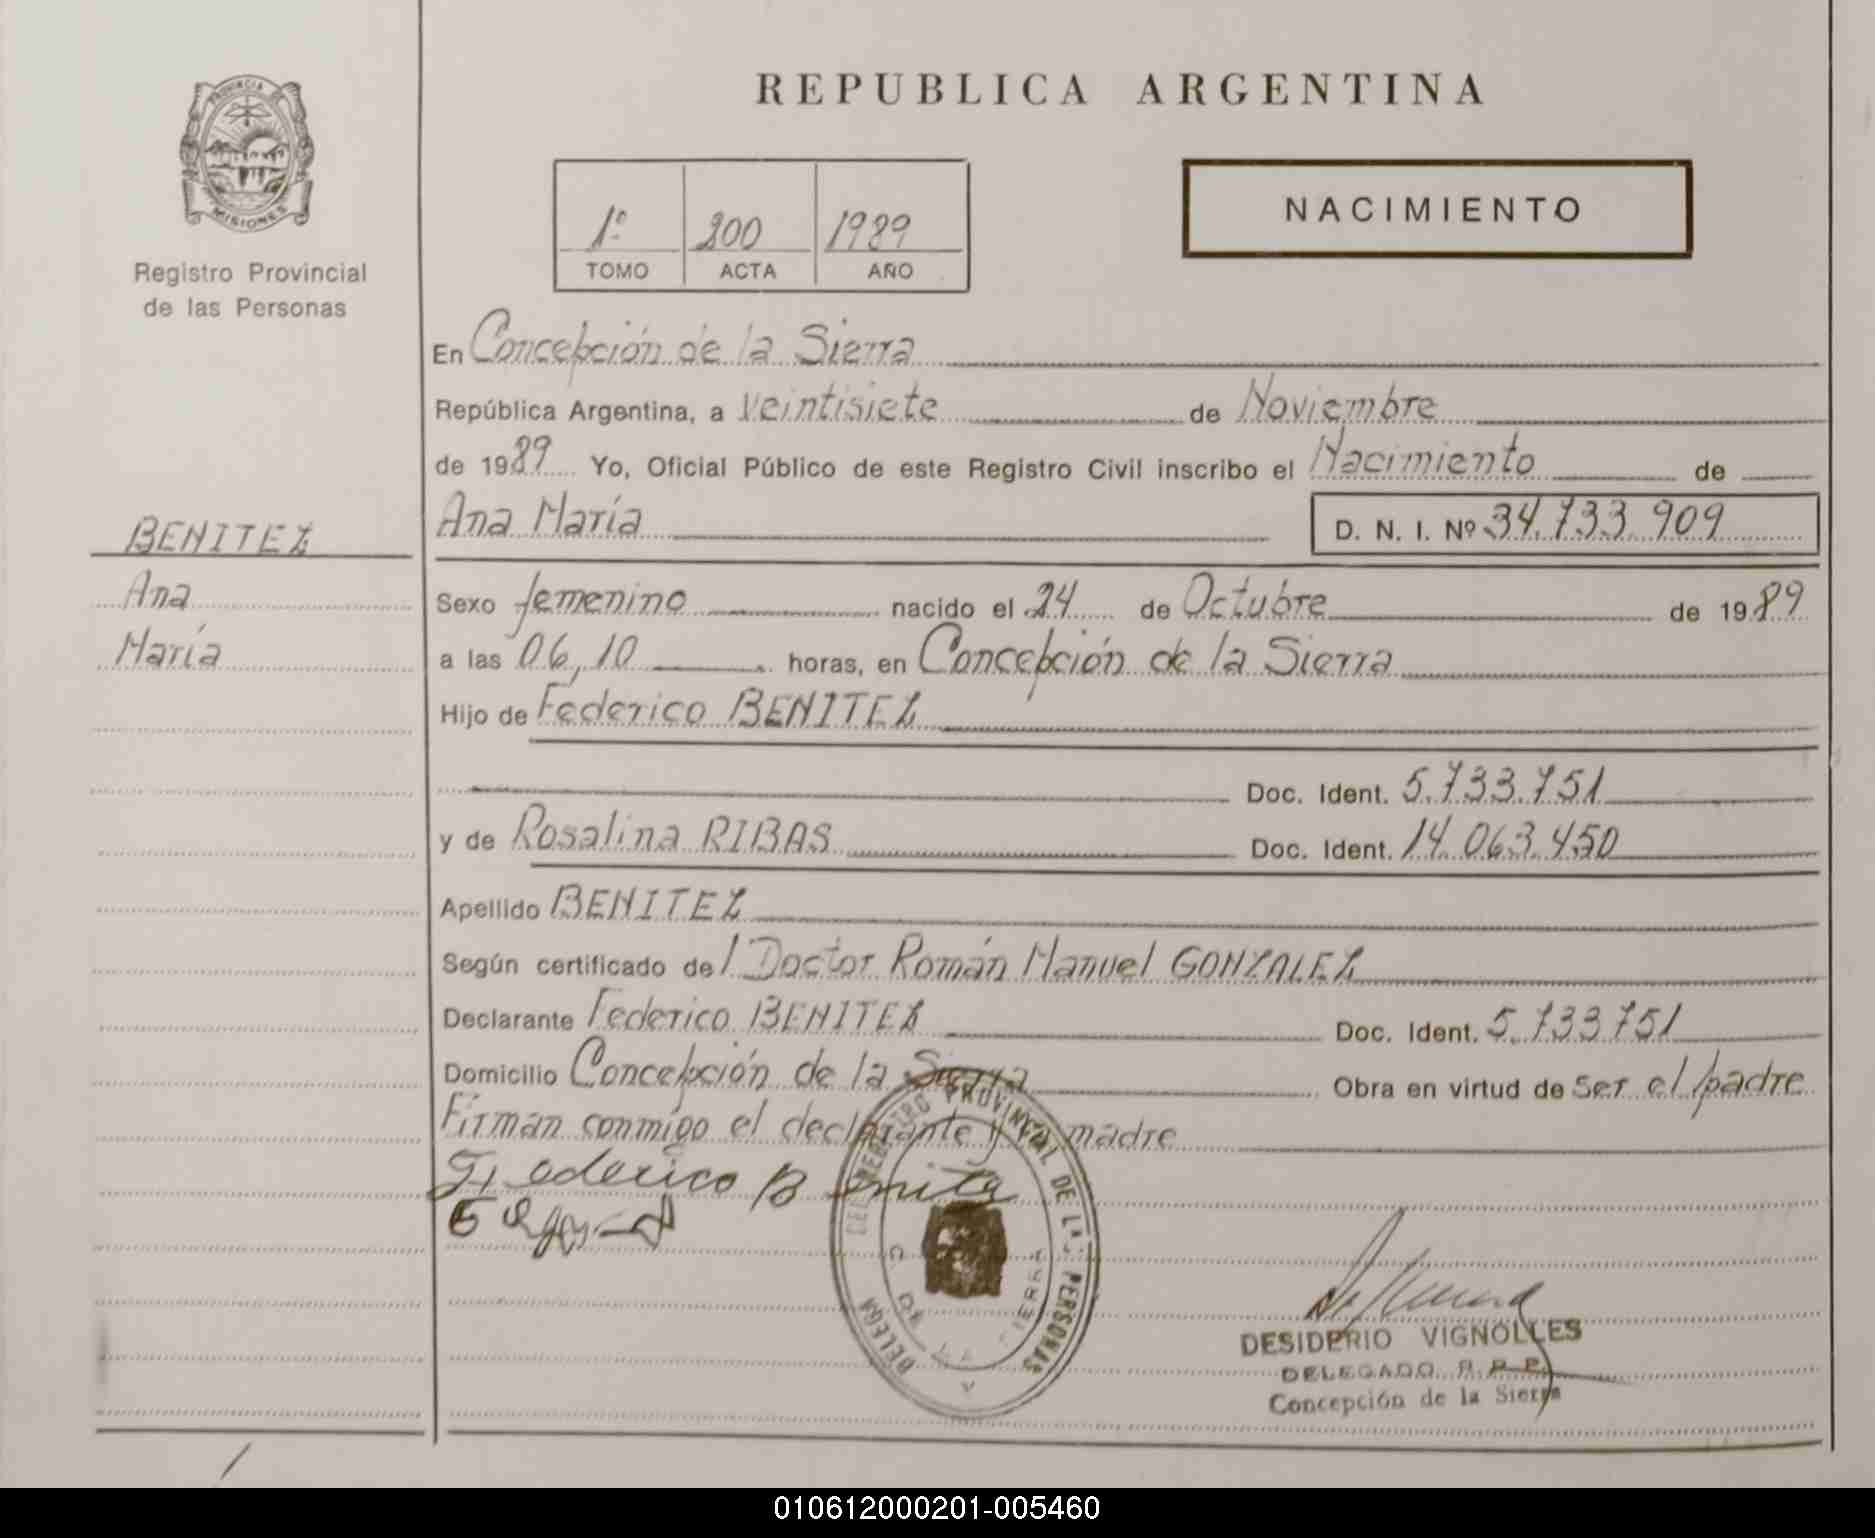 REPUBLICA ARGENTINA
PROVINCIA DE
MISIONES
Registro Provincial
de las Personas
1º 200 1989
TOMO ACTA AÑO
NACIMIENTO
En Concepción de la Sierra
República Argentina, a veintisiete de Noviembre
de 1989 Yo, Oficial Público de este Registro Civil inscribo el Nacimiento de
Ana María D. N. I. Nº 34.733.909
BENITEZ
Ana
María
Sexo femenino nacido el 24 de Octubre de 1989
a las 06,10 horas, en Concepción de la Sierra
Hijo de Federico BENITEZ
Doc. Ident. 5.733.751
y de Rosalina RIBAS Doc. Ident. 14.063.450
Apellido BENITEZ
Según certificado del Doctor Román Manuel GONZALEZ
Declarante Federico BENITEZ Doc. Ident. 5.733.751
Domicilio Concepción de la Sierra Obra en virtud de ser el padre
Firman conmigo el declarante y la madre
Federico Benitez
REGISTRO PROVINCIAL DE LAS PERSONAS
C. DE LA SIERRA
DESIDERIO VIGNOLLES
DELEGADO R. P. P.
Concepción de la Sierra
010612000201-005460